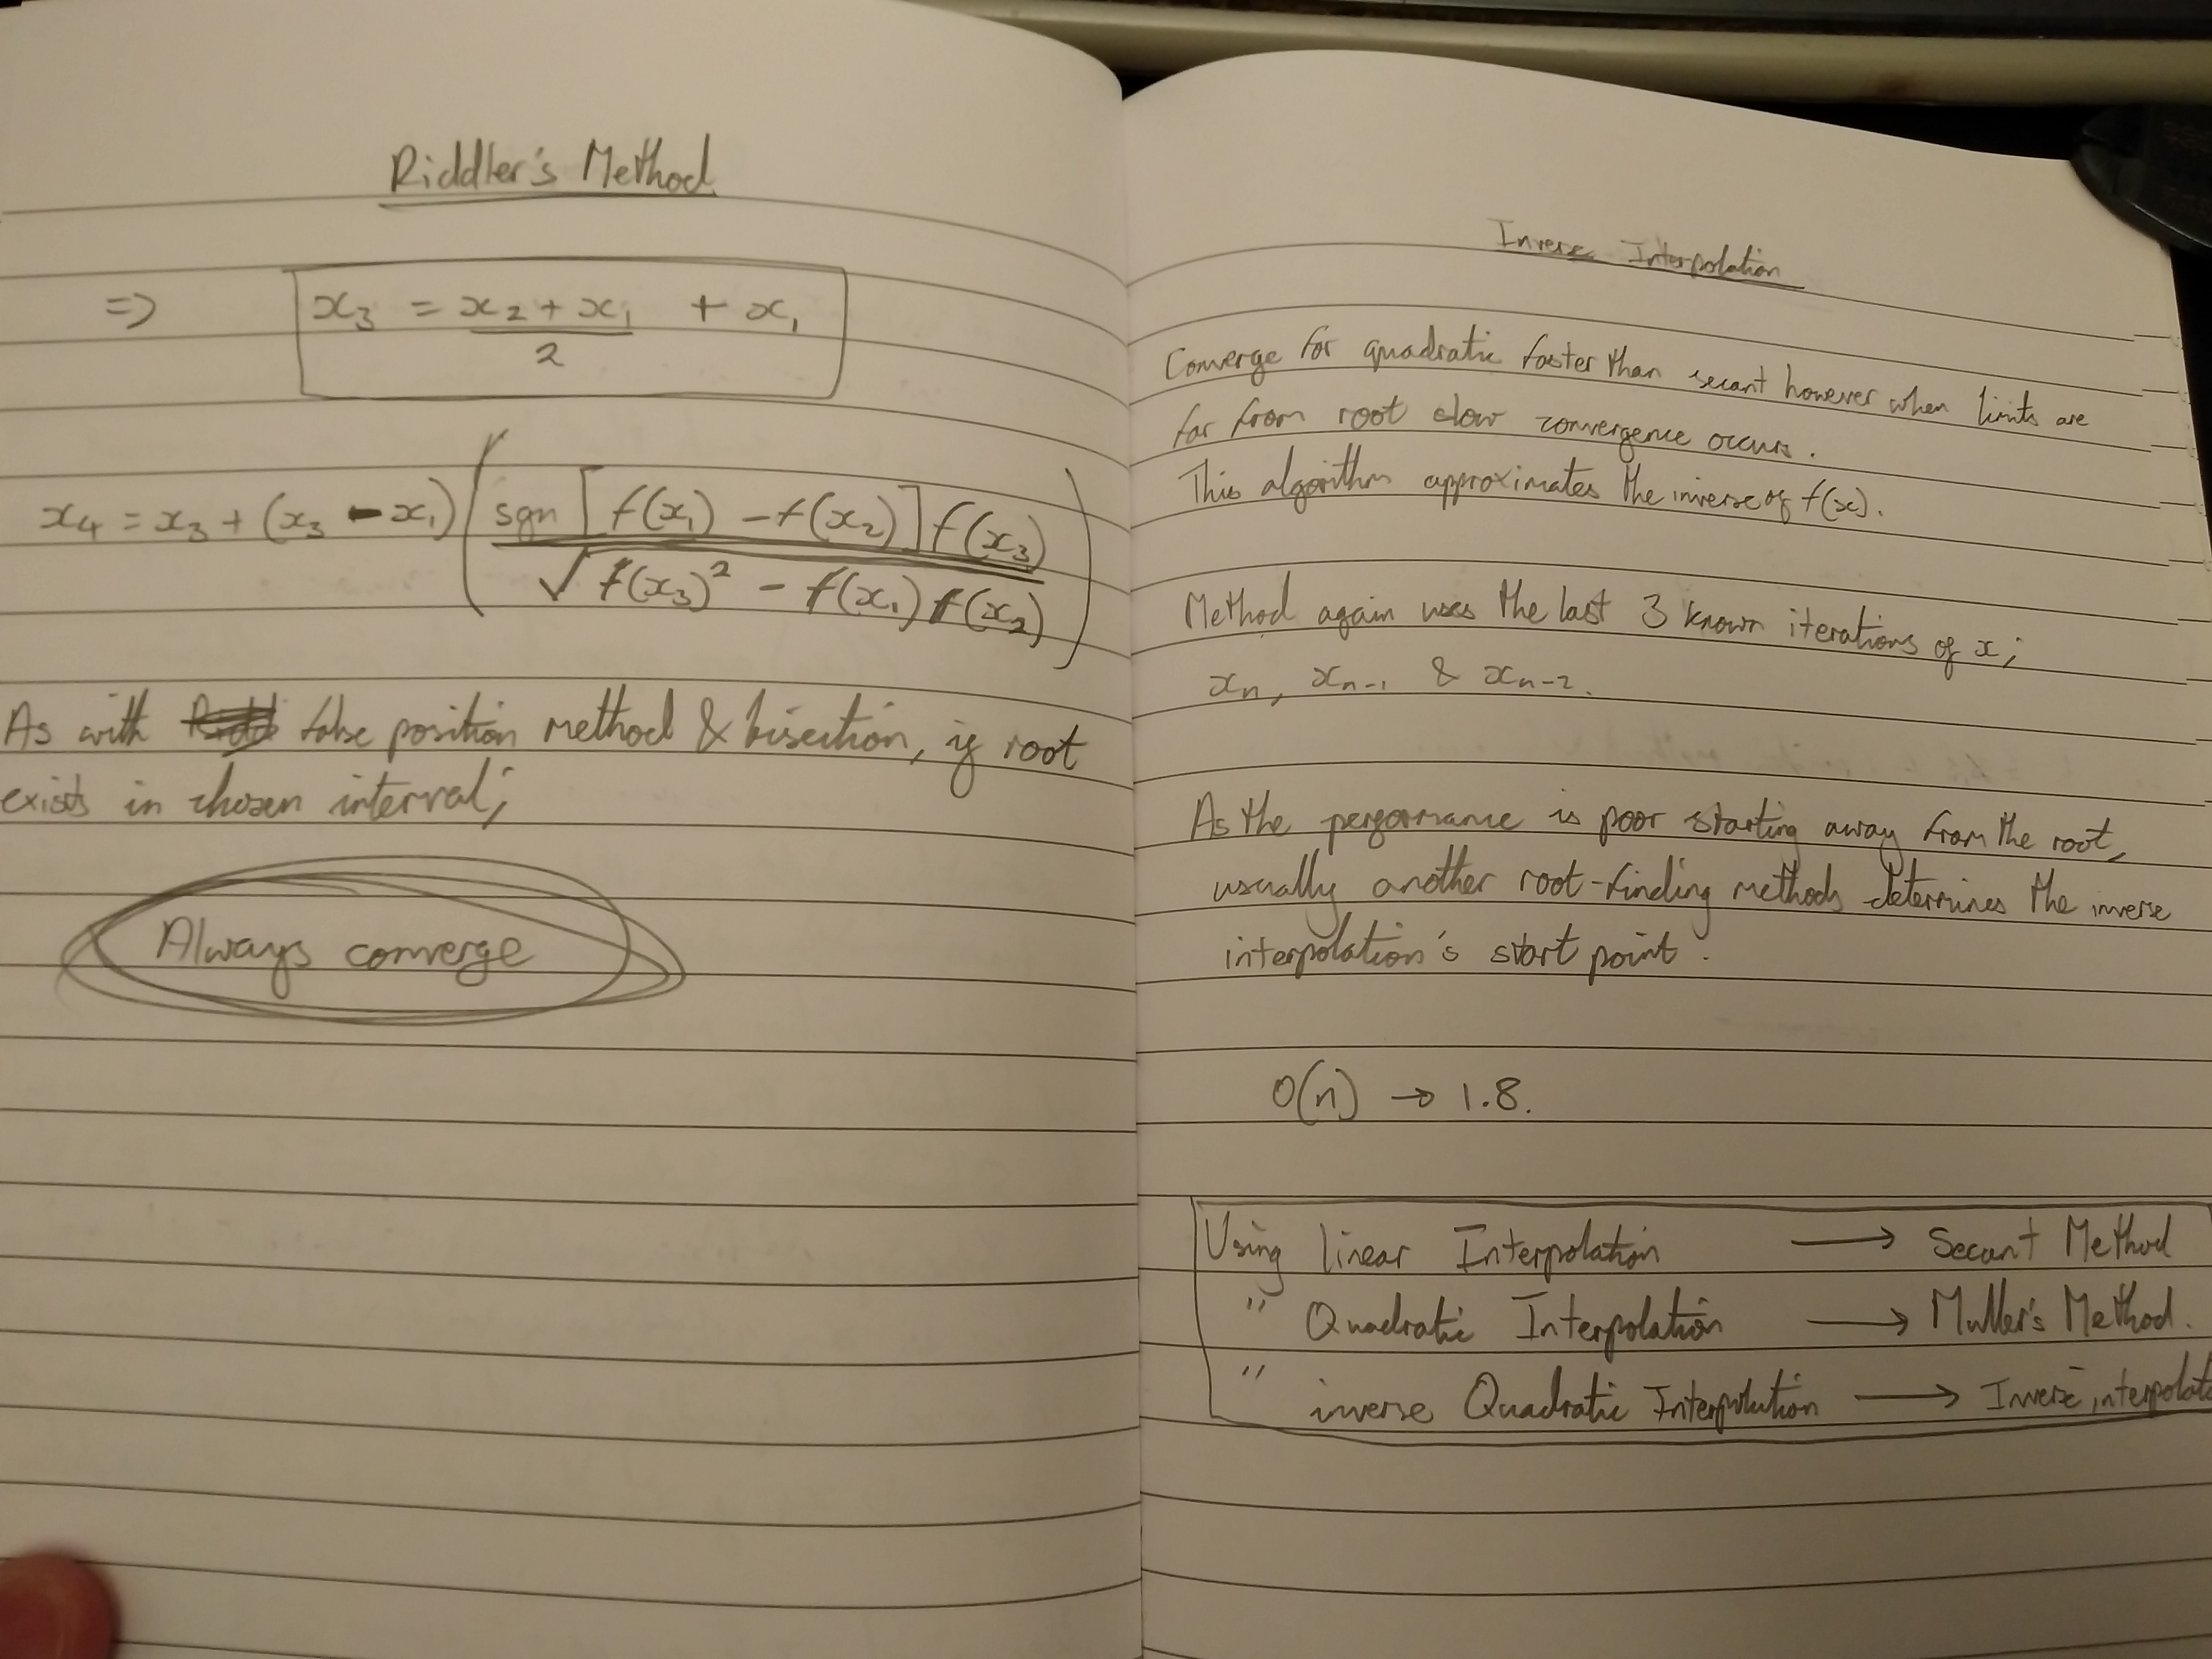 Riddler's Method
=> x₃ = (x₂ + x₁)/2 + x₁
x₄ = x₃ + (x₃ - x₁) ( sgn [f(x₁) - f(x₂)] f(x₃) / √(f(x₃)² - f(x₁) f(x₂)) )
As with false position method & bisection, if root
exists in chosen interval;
Always converge
Inverse Interpolation
Converge for quadratic faster than secant however when limits are
far from root slow convergence occurs.
This algorithm approximates the inverse of f(x).
Method again uses the last 3 known iterations of x;
xₙ, xₙ₋₁ & xₙ₋₂.
As the performance is poor starting away from the root,
usually another root-finding methods determines the inverse
interpolation's start point.
O(n) → 1.8.
Using linear Interpolation → Secant Method
" Quadratic Interpolation → Muller's Method.
" inverse Quadratic Interpolation → Inverse interpolat